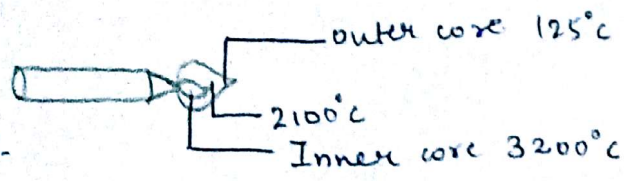 outer core 125°c
2100°c
Inner core 3200°c